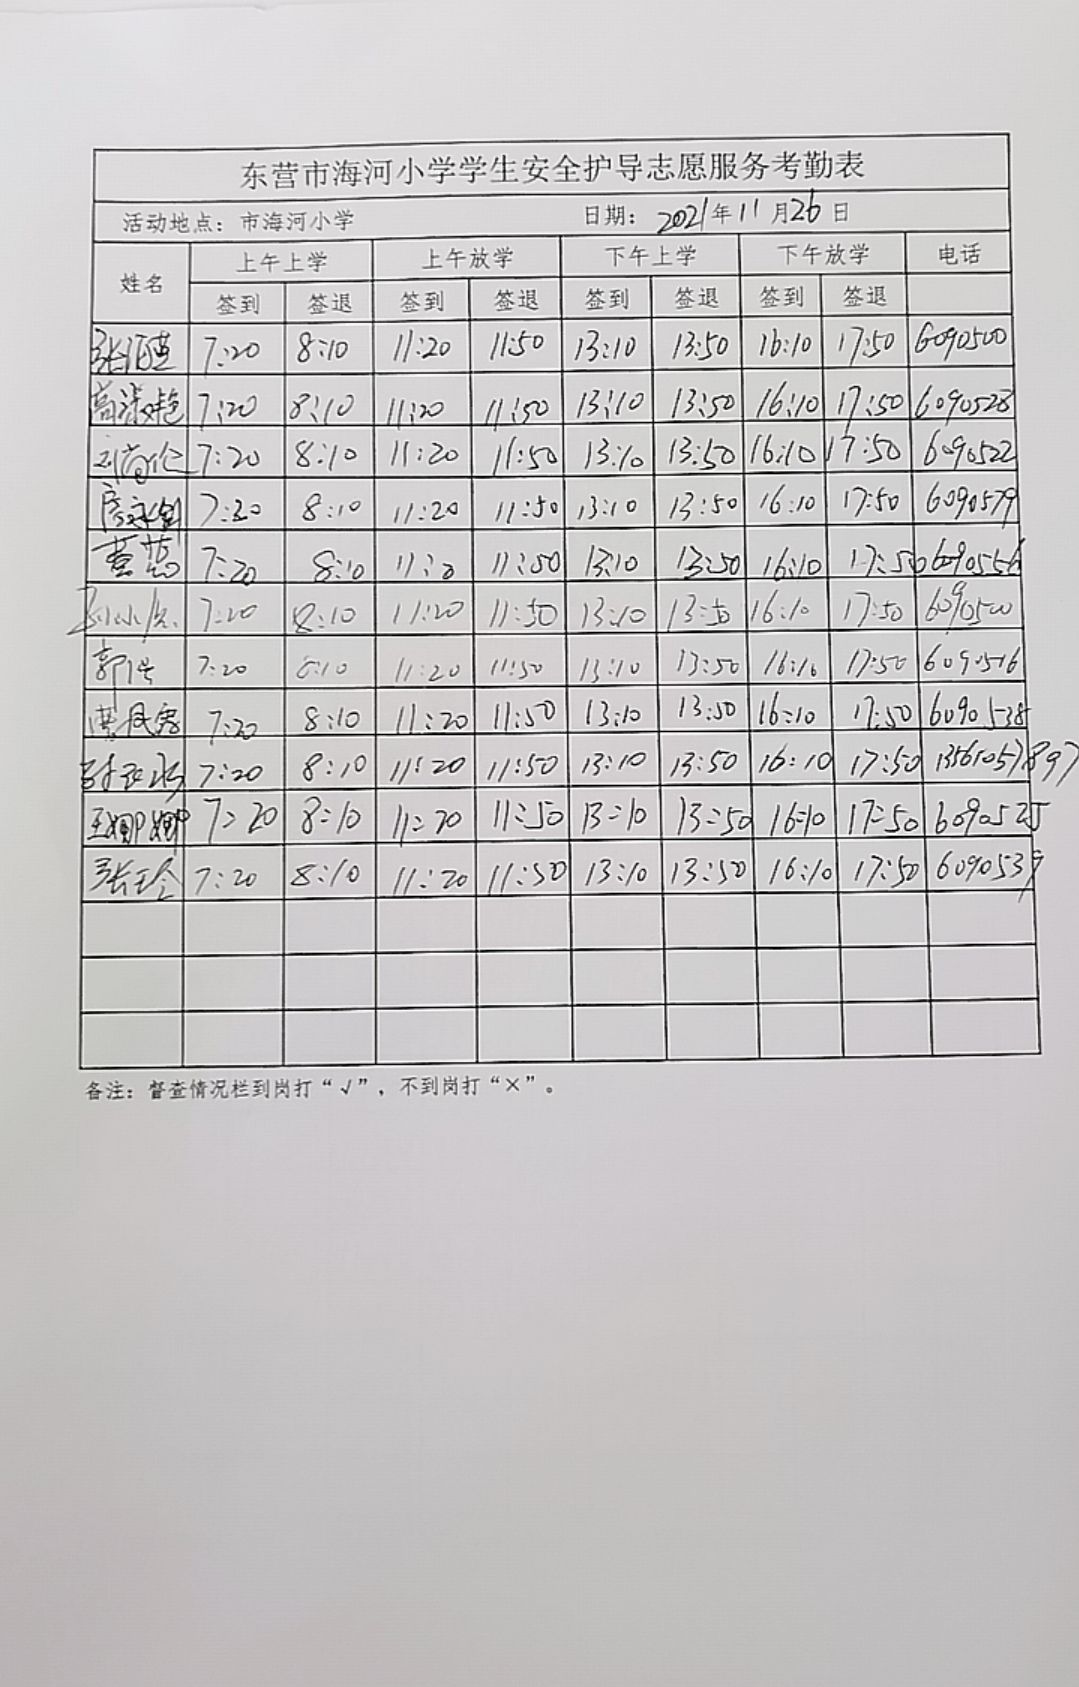 东营市海河小学学生安全护导志愿服务考勤表
活动地点：市海河小学 日期：2021年11月26日
姓名 上午上学 上午放学 下午上学 下午放学 电话
签到 签退 签到 签退 签到 签退 签到 签退
7:20 8:10 11:20 11:50 13:10 13:50 16:10 17:50 6090500
高淑艳 7:20 8:10 11:20 11:50 13:10 13:50 16:10 17:50 6090528
7:20 8:10 11:20 11:50 13:10 13:50 16:10 17:50 6090522
7:20 8:10 11:20 11:50 13:10 13:50 16:10 17:50 6090579
7:20 8:10 11:20 11:50 13:10 13:50 16:10 17:50 6090556
7:20 8:10 11:20 11:50 13:10 13:50 16:10 17:50 6090500
7:20 8:10 11:20 11:50 13:10 13:50 16:10 17:50 6090516
7:20 8:10 11:20 11:50 13:10 13:50 16:10 17:50 6090538
7:20 8:10 11:20 11:50 13:10 13:50 16:10 17:50 13561057897
王娜娜 7:20 8:10 11:20 11:50 13:10 13:50 16:10 17:50 6090525
张玲 7:20 8:10 11:20 11:50 13:10 13:50 16:10 17:50 6090539
备注：督查情况栏到岗打“√”，不到岗打“×”。